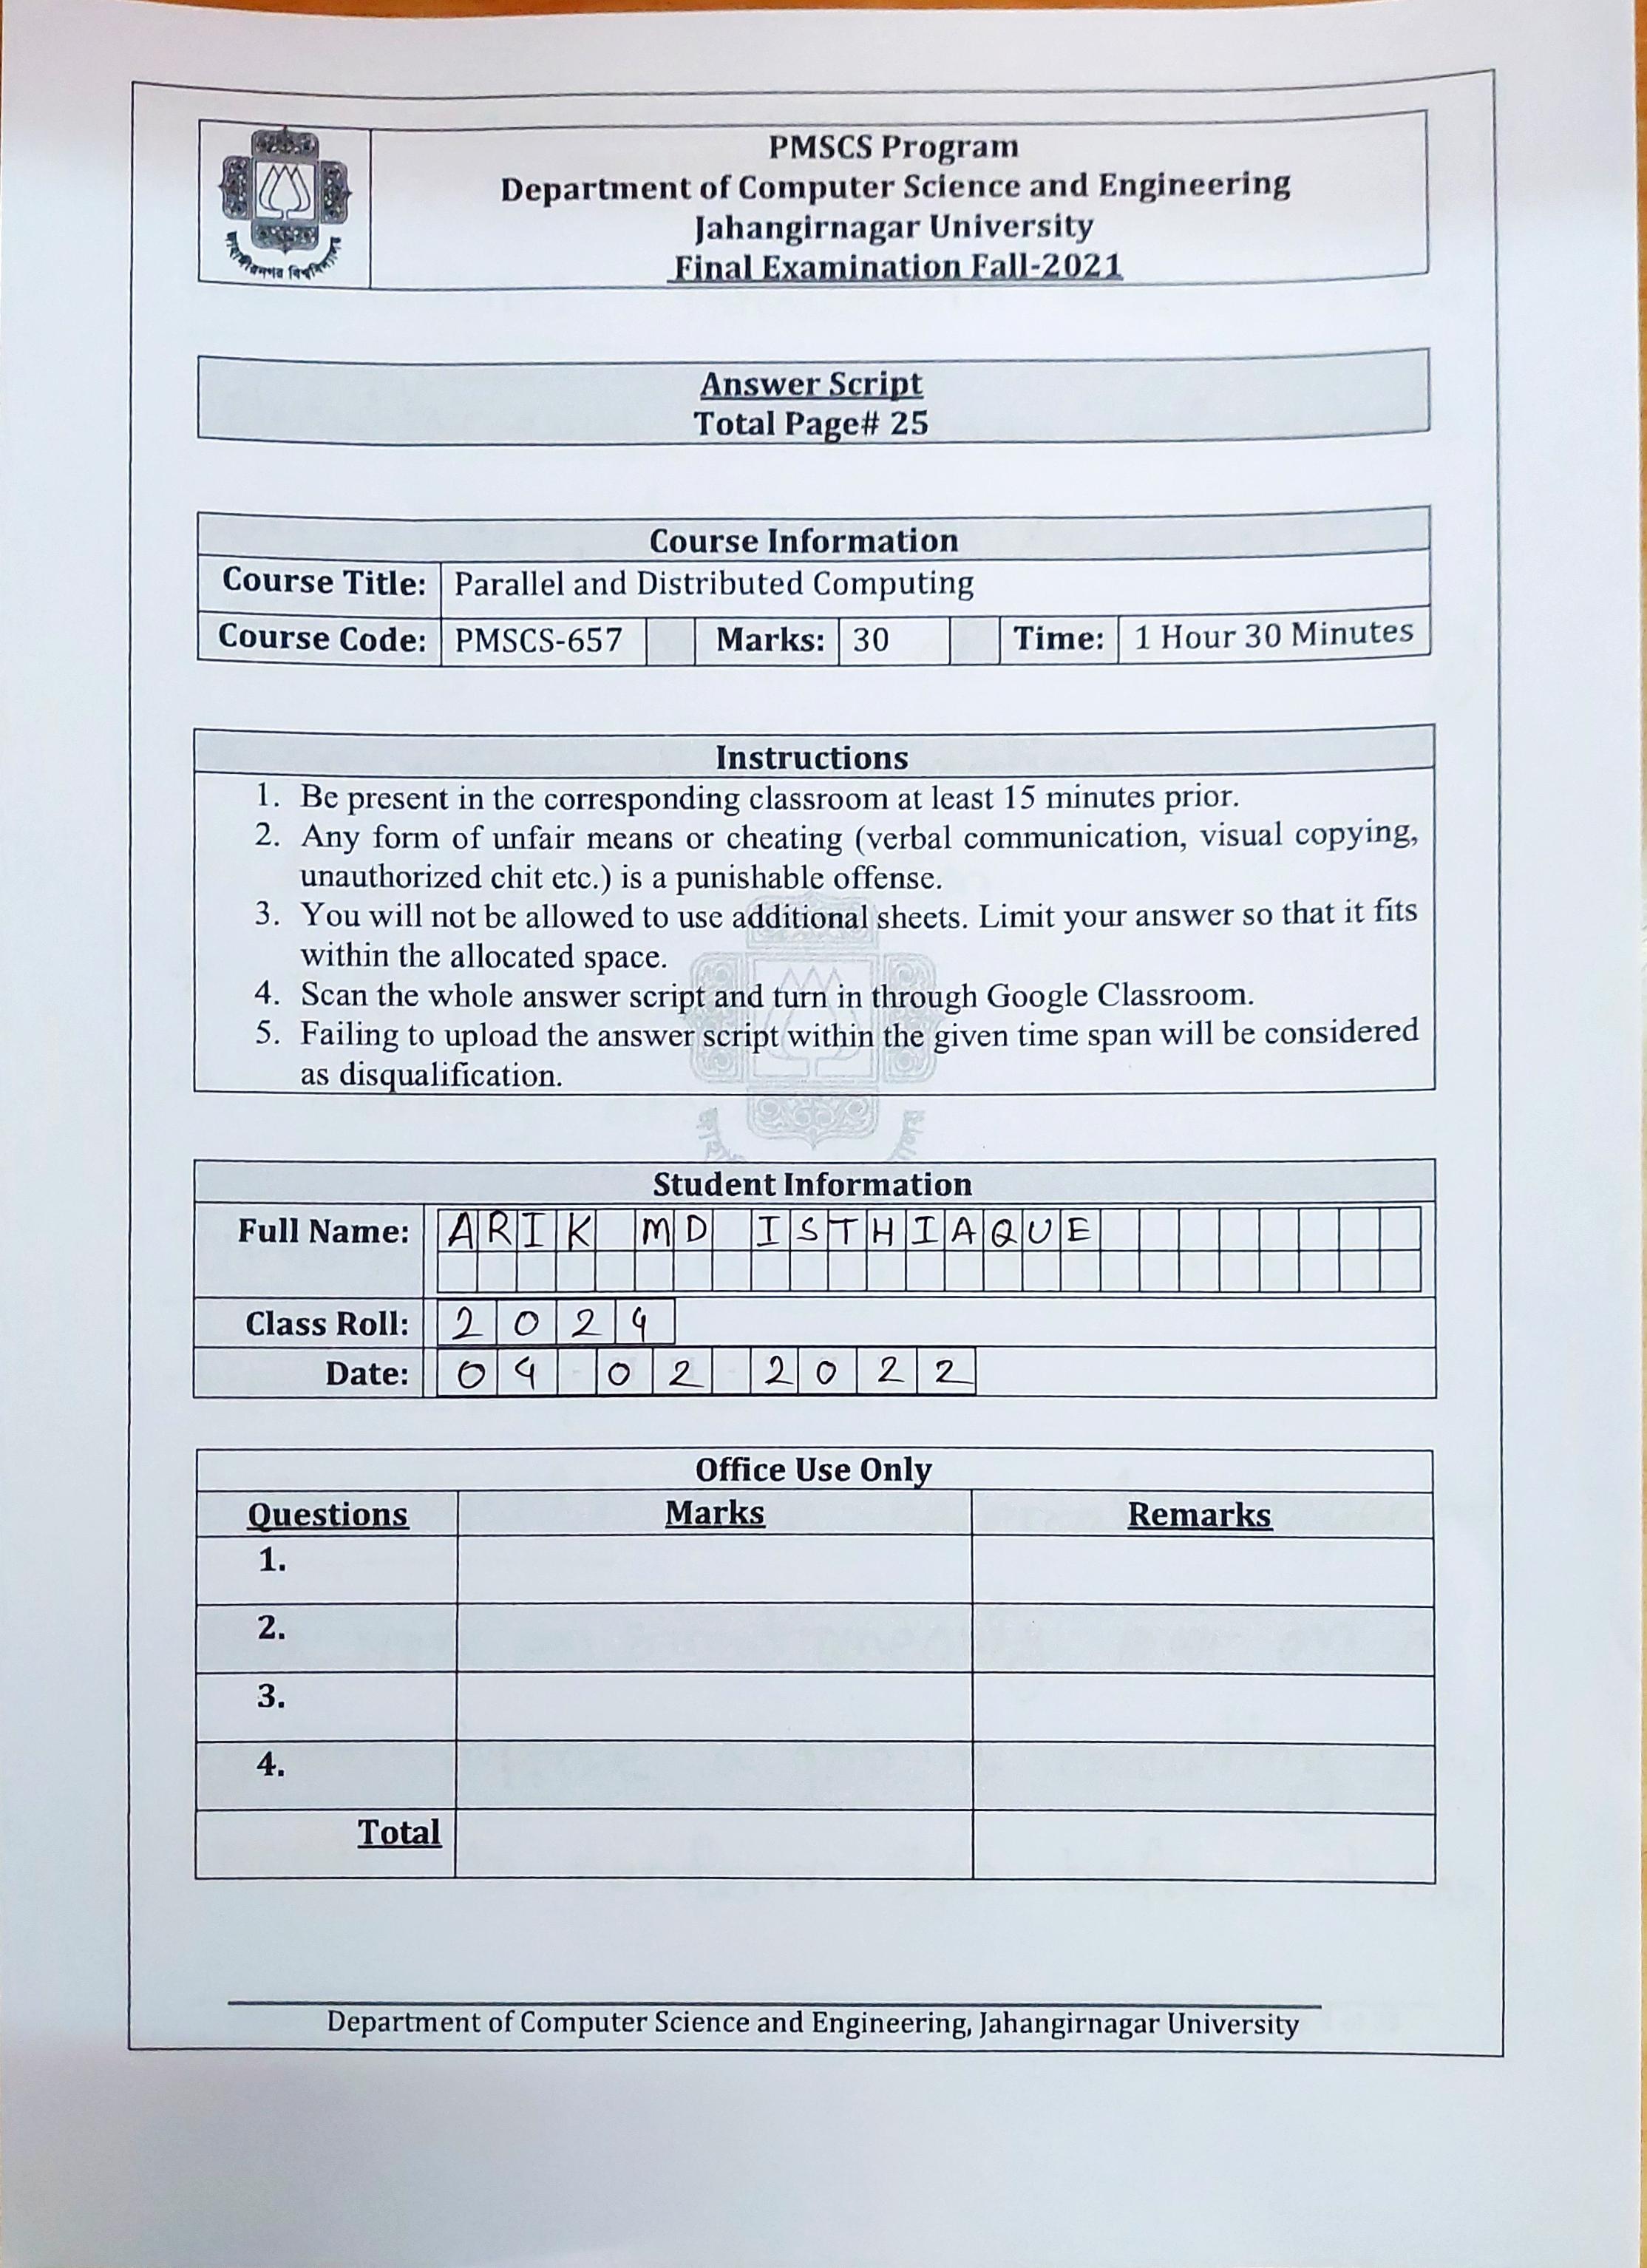 PMSCS Program
Department of Computer Science and Engineering
Jahangirnagar University
Final Examination Fall-2021
জাহাঙ্গীরনগর বিশ্ববিদ্যালয়
Answer Script
Total Page# 25
Course Information
Course Title: Parallel and Distributed Computing
Course Code: PMSCS-657 Marks: 30 Time: 1 Hour 30 Minutes
Instructions
1. Be present in the corresponding classroom at least 15 minutes prior.
2. Any form of unfair means or cheating (verbal communication, visual copying,
unauthorized chit etc.) is a punishable offense.
3. You will not be allowed to use additional sheets. Limit your answer so that it fits
within the allocated space.
4. Scan the whole answer script and turn in through Google Classroom.
5. Failing to upload the answer script within the given time span will be considered
as disqualification.
Student Information
Full Name: ARIK MD ISTHIAQUE
Class Roll: 2024
Date: 04 02 2022
Office Use Only
Questions Marks Remarks
1.
2.
3.
4.
Total
Department of Computer Science and Engineering, Jahangirnagar University